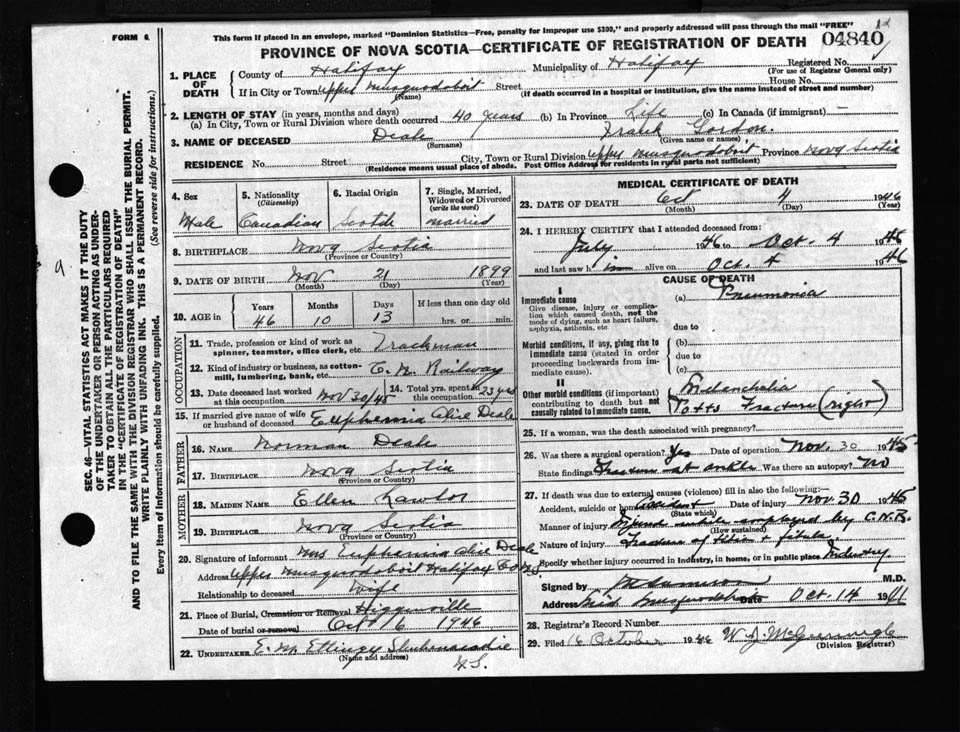 FORM 6.
This form if placed in an envelope, marked "Dominion Statistics—Free, penalty for improper use $300," and properly addressed will pass through the mail "FREE"
PROVINCE OF NOVA SCOTIA—CERTIFICATE OF REGISTRATION OF DEATH
04840
12
SEC. 46—VITAL STATISTICS ACT MAKES IT THE DUTY
OF THE UNDERTAKER OR PERSON ACTING AS UNDER-
TAKER TO OBTAIN ALL THE PARTICULARS REQUIRED
IN THE "CERTIFICATE OF REGISTRATION OF DEATH"
AND TO FILE THE SAME WITH THE DIVISION REGISTRAR WHO SHALL ISSUE THE BURIAL PERMIT.
WRITE PLAINLY WITH UNFADING INK. THIS IS A PERMANENT RECORD.
Every item of information should be carefully supplied. (See reverse side for instructions.)
1. PLACE OF DEATH
County of Halifax Municipality of Halifax Registered No.
(For use of Registrar General only)
If in City or Town Upper Musquodoboit Street House No.
(Name) (If death occurred in a hospital or institution, give the name instead of street and number)
2. LENGTH OF STAY (in years, months and days)
(a) In City, Town or Rural Division where death occurred 40 years (b) In Province Life (c) In Canada (if immigrant)
3. NAME OF DECEASED Deale Frank Gordon.
(Surname) (Given name or names)
RESIDENCE No. Street City, Town or Rural Division Upper Musquodoboit Province Nova Scotia
(Residence means usual place of abode. Post Office Address for residents in rural parts not sufficient)
4. Sex Male
5. Nationality (Citizenship) Canadian
6. Racial Origin Scotch
7. Single, Married, Widowed or Divorced (write the word) married
8. BIRTHPLACE Nova Scotia
(Province or Country)
9. DATE OF BIRTH Nov 21 1899
(Month) (Day) (Year)
10. AGE in Years 46 Months 10 Days 13 If less than one day old hrs. or min.
OCCUPATION
11. Trade, profession or kind of work as spinner, teamster, office clerk, etc. Trackman
12. Kind of industry or business, as cotton-mill, lumbering, bank, etc. C. N. Railway
13. Date deceased last worked at this occupation Nov 30/45
14. Total yrs. spent in this occupation 23 yrs
15. If married give name of wife or husband of deceased Euphemia Alice Deale
FATHER
16. NAME Norman Deale
17. BIRTHPLACE Nova Scotia
(Province or Country)
MOTHER
18. MAIDEN NAME Ellen Lawlor
19. BIRTHPLACE Nova Scotia
(Province or Country)
20. Signature of informant Mrs Euphemia Alice Deale
Address Upper Musquodoboit Halifax Co N.S.
Relationship to deceased Wife
21. Place of Burial, Cremation or Removal Higginsville
Date of burial or removal Oct 6 1946
22. UNDERTAKER E. M. Ettinger Shubenacadie
(Name and address) N.S.
MEDICAL CERTIFICATE OF DEATH
23. DATE OF DEATH Oct 4 1946
(Month) (Day) (Year)
24. I HEREBY CERTIFY that I attended deceased from:
July 1946 to Oct. 4 1946
and last saw h im alive on Oct. 4 1946
CAUSE OF DEATH
I
Immediate cause
Give disease, injury or complication which caused death, not the mode of dying, such as heart failure, asphyxia, asthenia, etc
(a) Pneumonia
due to
Morbid conditions, if any, giving rise to immediate cause (stated in order proceeding backwards from immediate cause).
(b)
due to
(c)
II
Other morbid conditions (if important) contributing to death but not causally related to immediate cause.
Melancholia
Potts Fracture (right)
25. If a woman, was the death associated with pregnancy?
26. Was there a surgical operation? Yes Date of operation Nov. 30 1945
State findings Fracture at ankle Was there an autopsy? No
27. If death was due to external causes (violence) fill in also the following:—
Accident, suicide or homicide Accident Date of injury Nov 30 1945
(State which)
Manner of injury Injured while employed by C.N.R.
(How sustained)
Nature of injury Fracture of tibia + fibula
Specify whether injury occurred in Industry, in home, or in public place Industry
Signed by M.D.
Address Mid Musquodoboit Date Oct. 14 19
28. Registrar's Record Number
29. Filed 16 October 1946
(Division Registrar)